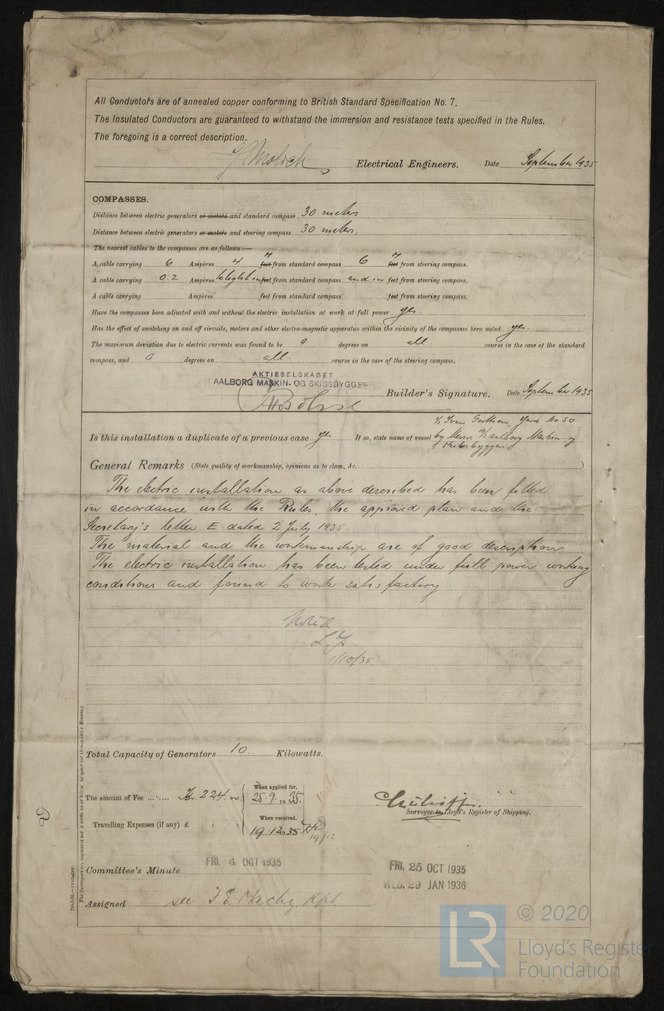 All Conductors are of annealed copper conforming to British Standard Specification No. 7.
The Insulated Conductors are guaranteed to withstand the immersion and resistance tests specified in the Rules.
The foregoing is a correct description.
Electrical Engineers. Date September 1935
COMPASSES.
Distance between electric generators or motors and standard compass 30 meters
Distance between electric generators or motors and steering compass 30 meters.
The nearest cables to the compasses are as follows:—
A cable carrying 6 Ampères 4 feet from standard compass 6 feet from steering compass.
A cable carrying 0.2 Ampères feet from standard compass feet from steering compass.
A cable carrying Ampères feet from standard compass feet from steering compass.
Have the compasses been adjusted with and without the electric installation at work at full power yes
Has the effect of switching on and off circuits, motors and other electro-magnetic apparatus within the vicinity of the compasses been noted yes.
The maximum deviation due to electric currents was found to be 0 degrees on all course in the case of the standard
compass, and 0 degrees on all course in the case of the steering compass.
AKTIESELSKABET
AALBORG MASKIN- OG SKIBSBYGGERI
Builder's Signature. Date September 1935
Is this installation a duplicate of a previous case yes If so, state name of vessel Yard No 50
General Remarks (State quality of workmanship, opinions as to class, &c.
The electric installation as above described has been fitted
in accordance with the Rules, the approved plan and the
Secretary's letter E dated 2 July 1935
The material and the workmanship are of good description
The electric installation has been tested under full power working
conditions and found to work satisfactory
Noted
1/10/35
Total Capacity of Generators 10 Kilowatts.
The amount of Fee ... ... Kr. 224.
When applied for,
25.9.1935.
Travelling Expenses (if any) £ : :
When received,
19.12.35
Surveyor to Lloyd's Register of Shipping.
Committee's Minute FRI. 4 OCT 1935
FRI. 25 OCT 1935
WED. 29 JAN 1936
Assigned see
© 2020
LR
Lloyd's Register
Foundation